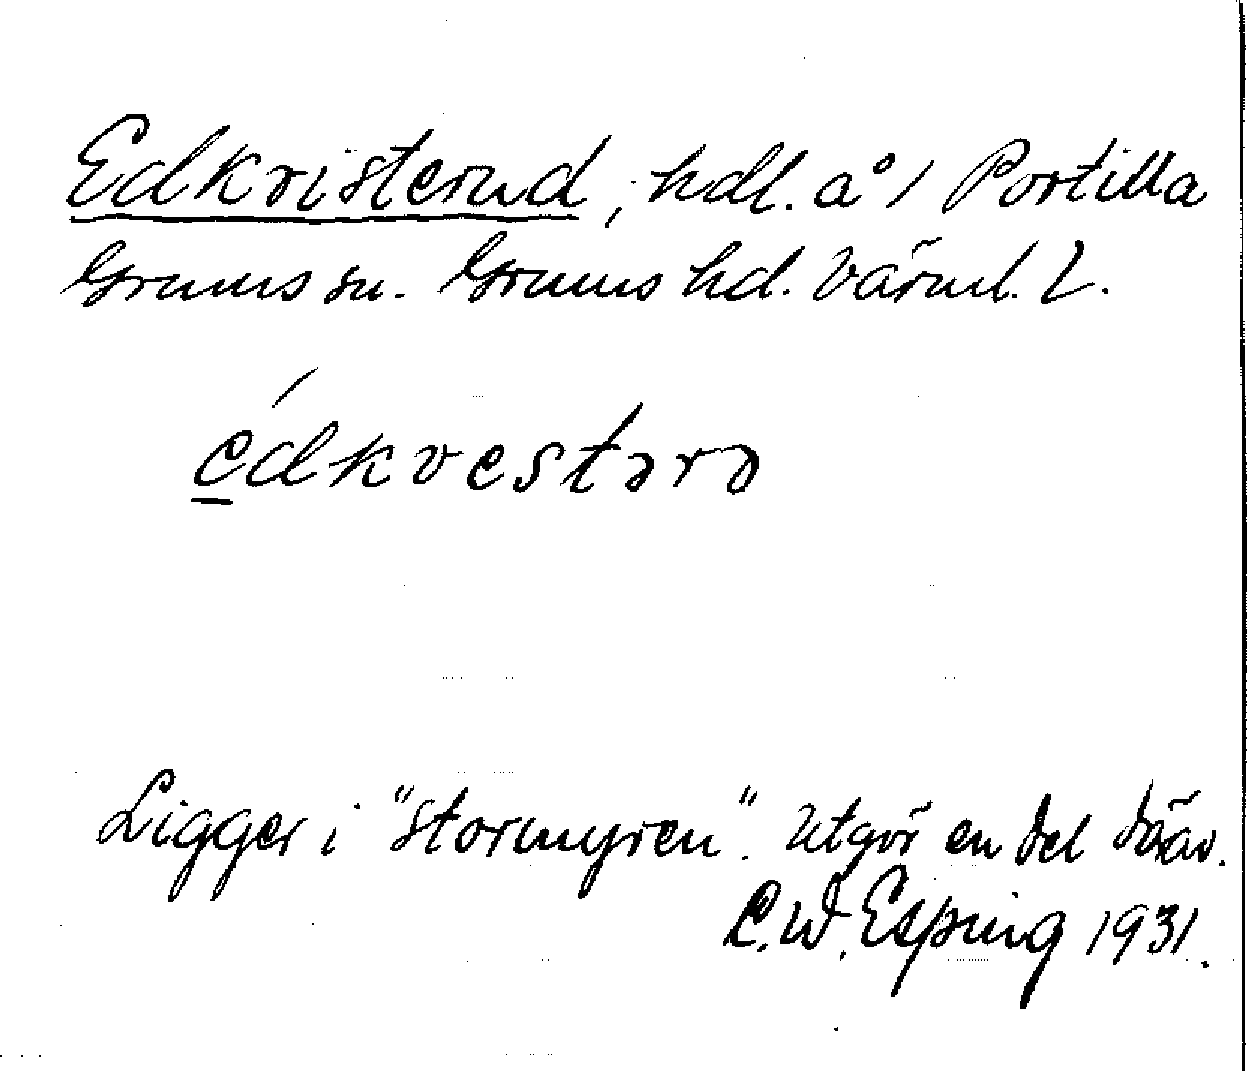 Edkristerud, hdl. å 1 Portilla
Grums sn. Grums hd. Värml. L.
édkvestərə
Ligger i "Stormyren". Utgör en del därav.
C.W. Esping 1931.